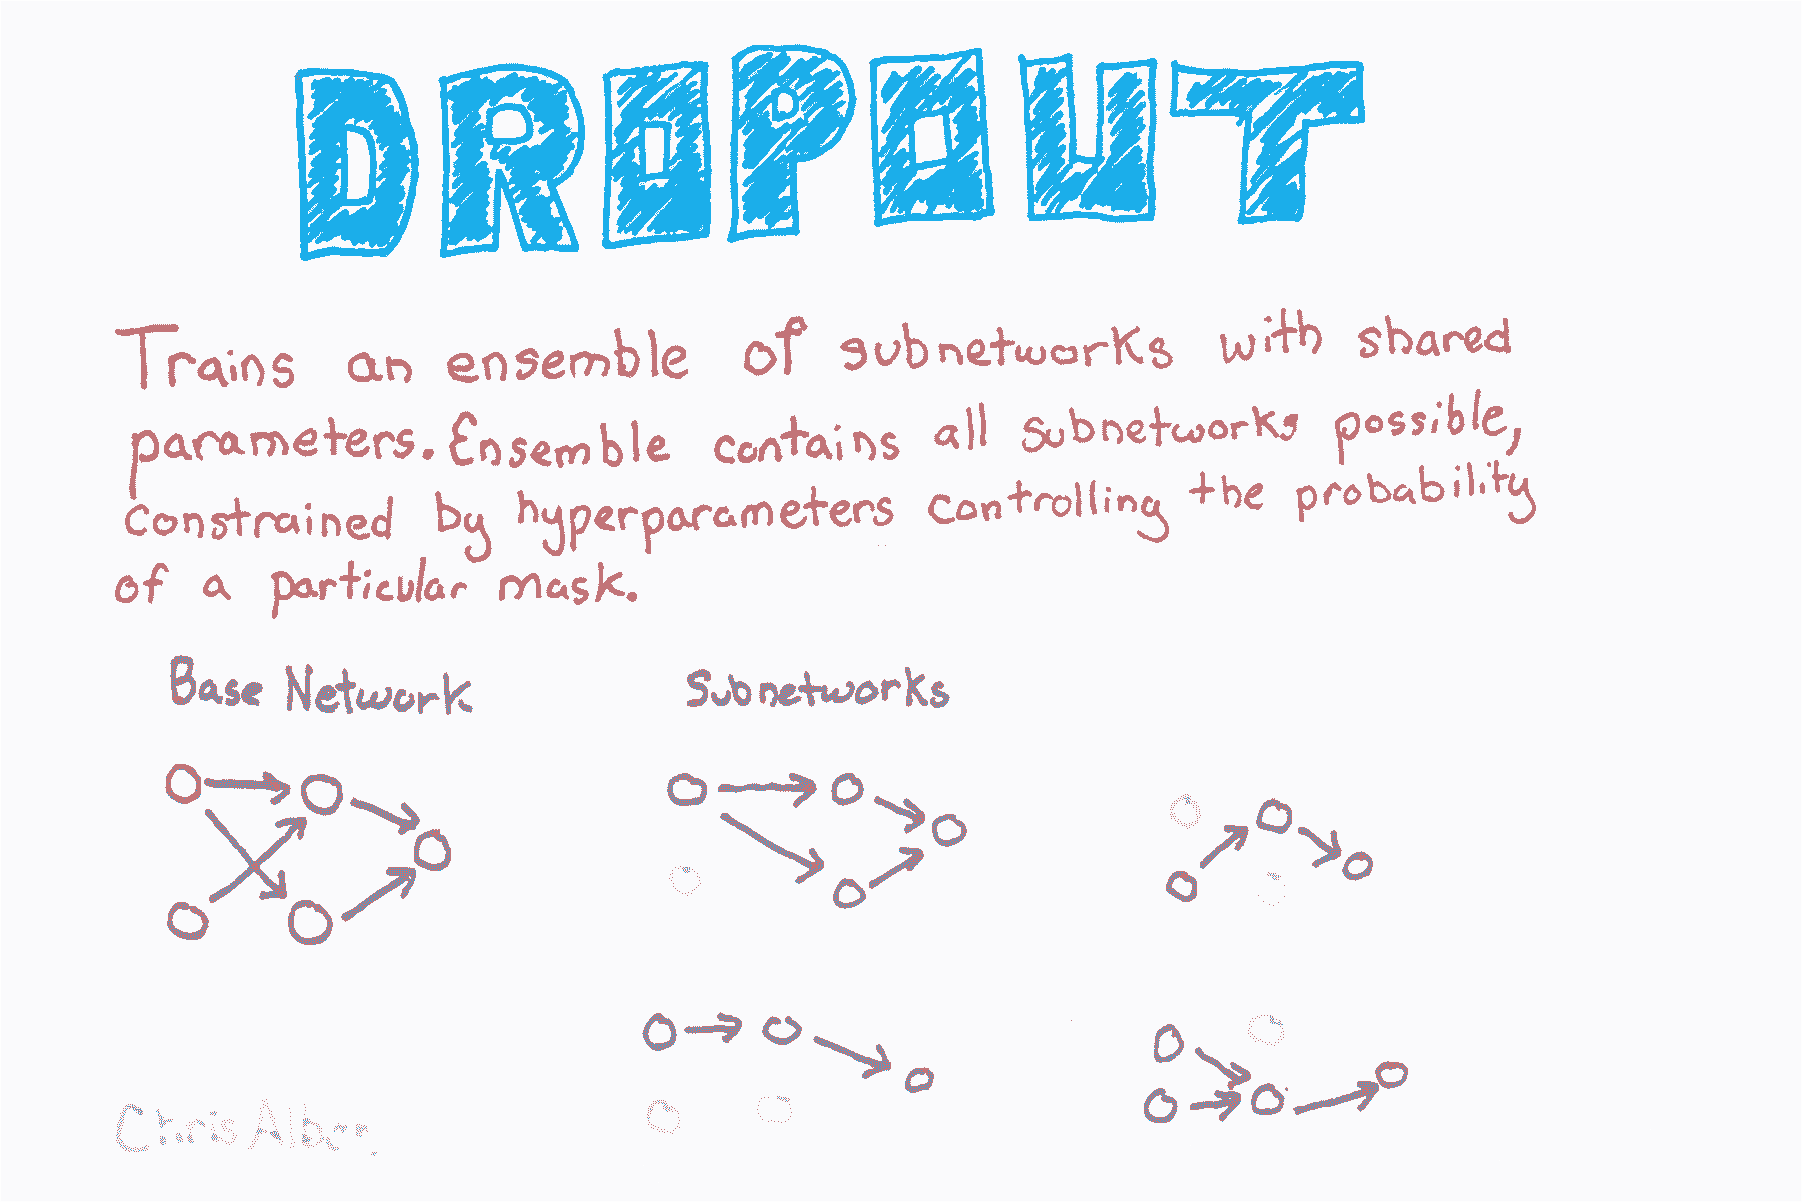 DROPOUT
Trains an ensemble of subnetworks with shared
parameters. Ensemble contains all subnetworks possible,
constrained by hyperparameters controlling the probability
of a particular mask.
Base Network
Subnetworks
Chris Albon